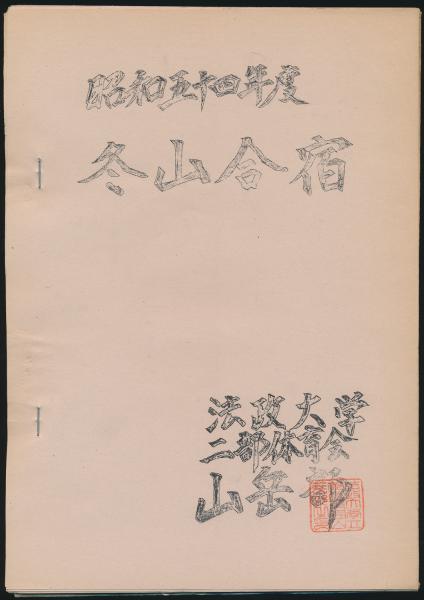 昭和五十四年度
冬山合宿
法政大学
二部体育会
山岳部